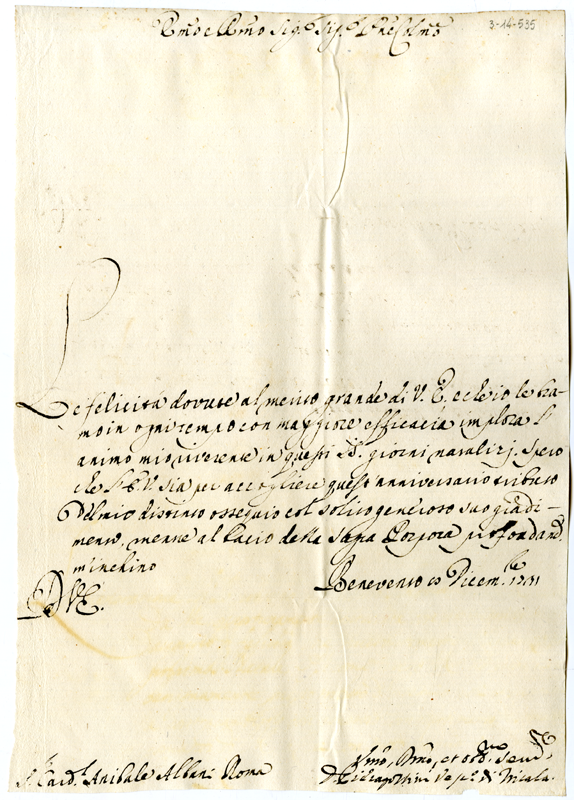 Em̃o e Rm̃o Sig.re Sig.re P̃ne Colm̃o
3-14-535
Le felicità dovute al merito grande di V. E. e che io le bra-
mo in ogni tempo con maggiore efficacia implora l'
animo mio riverente in questi SS. giorni natalizj. Spero
che l'E.V. sia per accogliere quest'anniversario tributo
del mio distinto ossequio col solito generoso suo gradi-
mento, mentre al bacio della Sagra Porpora profondam.
m'inchino
D V. E.
Benevento Dicem.bre 1731
S.r Card.l Anibale Albani Roma
Um̃o, et obb. Serv.